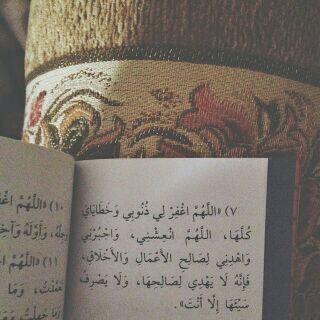 ٧) «اللَّهُمَّ اغْفِرْ لِي ذُنُوبِي وَخَطَايَايَ
كُلَّهَا، اللَّهُمَّ انْعِشْنِي، وَاجْبُرْنِي
وَاهْدِنِي لِصَالِحِ الأَعْمَالِ وَالأَخْلَاقِ،
فَإِنَّهُ لَا يَهْدِي لِصَالِحِهَا، وَلَا يَصْرِفُ
سَيِّئَهَا إِلَّا أَنْتَ».
١٠) «اللَّهُمَّ
وَأَوَّلَهُ
١١) «اللَّهُمَّ
وَمَا